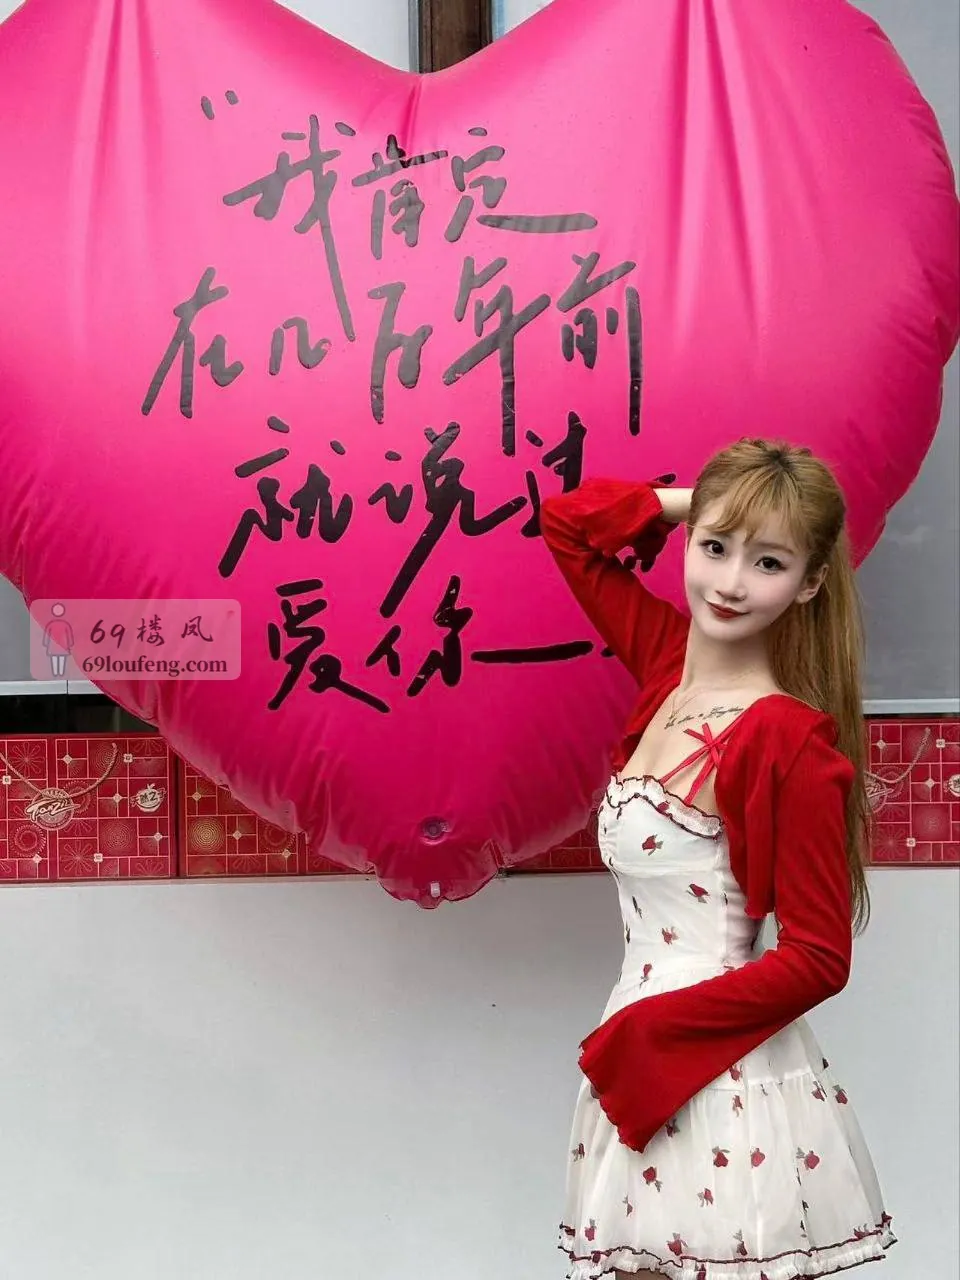 “我肯定
在几百年前
就说过
爱你—
69楼凤
69loufeng.com